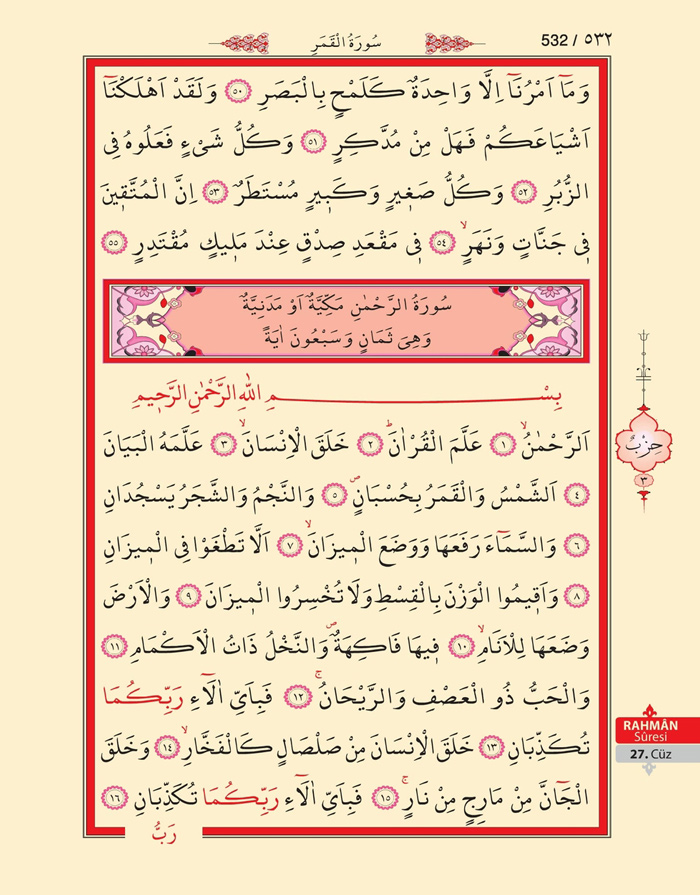 532 / ٥٣٢
سُورَةُ الْقَمَرِ
وَمَٓا اَمْرُنَٓا اِلَّا وَاحِدَةٌ كَلَمْحٍ بِالْبَصَرِ ٥٠ وَلَقَدْ اَهْلَكْنَٓا
اَشْيَاعَكُمْ فَهَلْ مِنْ مُدَّكِرٍ ٥١ وَكُلُّ شَيْءٍ فَعَلُوهُ فِي
الزُّبُرِ ٥٢ وَكُلُّ صَغ۪يرٍ وَكَب۪يرٍ مُسْتَطَرٌ ٥٣ اِنَّ الْمُتَّق۪ينَ
ف۪ي جَنَّاتٍ وَنَهَرٍۙ ٥٤ ف۪ي مَقْعَدِ صِدْقٍ عِنْدَ مَل۪يكٍ مُقْتَدِرٍ ٥٥
سُورَةُ الرَّحْمٰنِ مَكِّيَّةٌ اَوْ مَدَنِيَّةٌ
وَهِيَ ثَمَانٍ وَسَبْعُونَ اٰيَةً
بِسْــــــــمِ اللّٰهِ الرَّحْمٰنِ الرَّح۪يمِ
اَلرَّحْمٰنُۙ ١ عَلَّمَ الْقُرْاٰنَۜ ٢ خَلَقَ الْاِنْسَانَۙ ٣ عَلَّمَهُ الْبَيَانَ
٤ اَلشَّمْسُ وَالْقَمَرُ بِحُسْبَانٍۖ ٥ وَالنَّجْمُ وَالشَّجَرُ يَسْجُدَانِ
٦ وَالسَّمَٓاءَ رَفَعَهَا وَوَضَعَ الْم۪يزَانَۙ ٧ اَلَّا تَطْغَوْا فِي الْم۪يزَانِ
٨ وَاَق۪يمُوا الْوَزْنَ بِالْقِسْطِ وَلَا تُخْسِرُوا الْم۪يزَانَ ٩ وَالْاَرْضَ
وَضَعَهَا لِلْاَنَامِۙ ١٠ ف۪يهَا فَاكِهَةٌۖ وَالنَّخْلُ ذَاتُ الْاَكْمَامِ ١١
وَالْحَبُّ ذُو الْعَصْفِ وَالرَّيْحَانُۚ ١٢ فَبِاَيِّ اٰلَٓاءِ رَبِّكُمَا
تُكَذِّبَانِ ١٣ خَلَقَ الْاِنْسَانَ مِنْ صَلْصَالٍ كَالْفَخَّارِۙ ١٤ وَخَلَقَ
الْجَٓانَّ مِنْ مَارِجٍ مِنْ نَارٍۚ ١٥ فَبِاَيِّ اٰلَٓاءِ رَبِّكُمَا تُكَذِّبَانِ ١٦
رَبُّ
حِزْبٌ
٣
RAHMÂN
Sûresi
27. Cüz